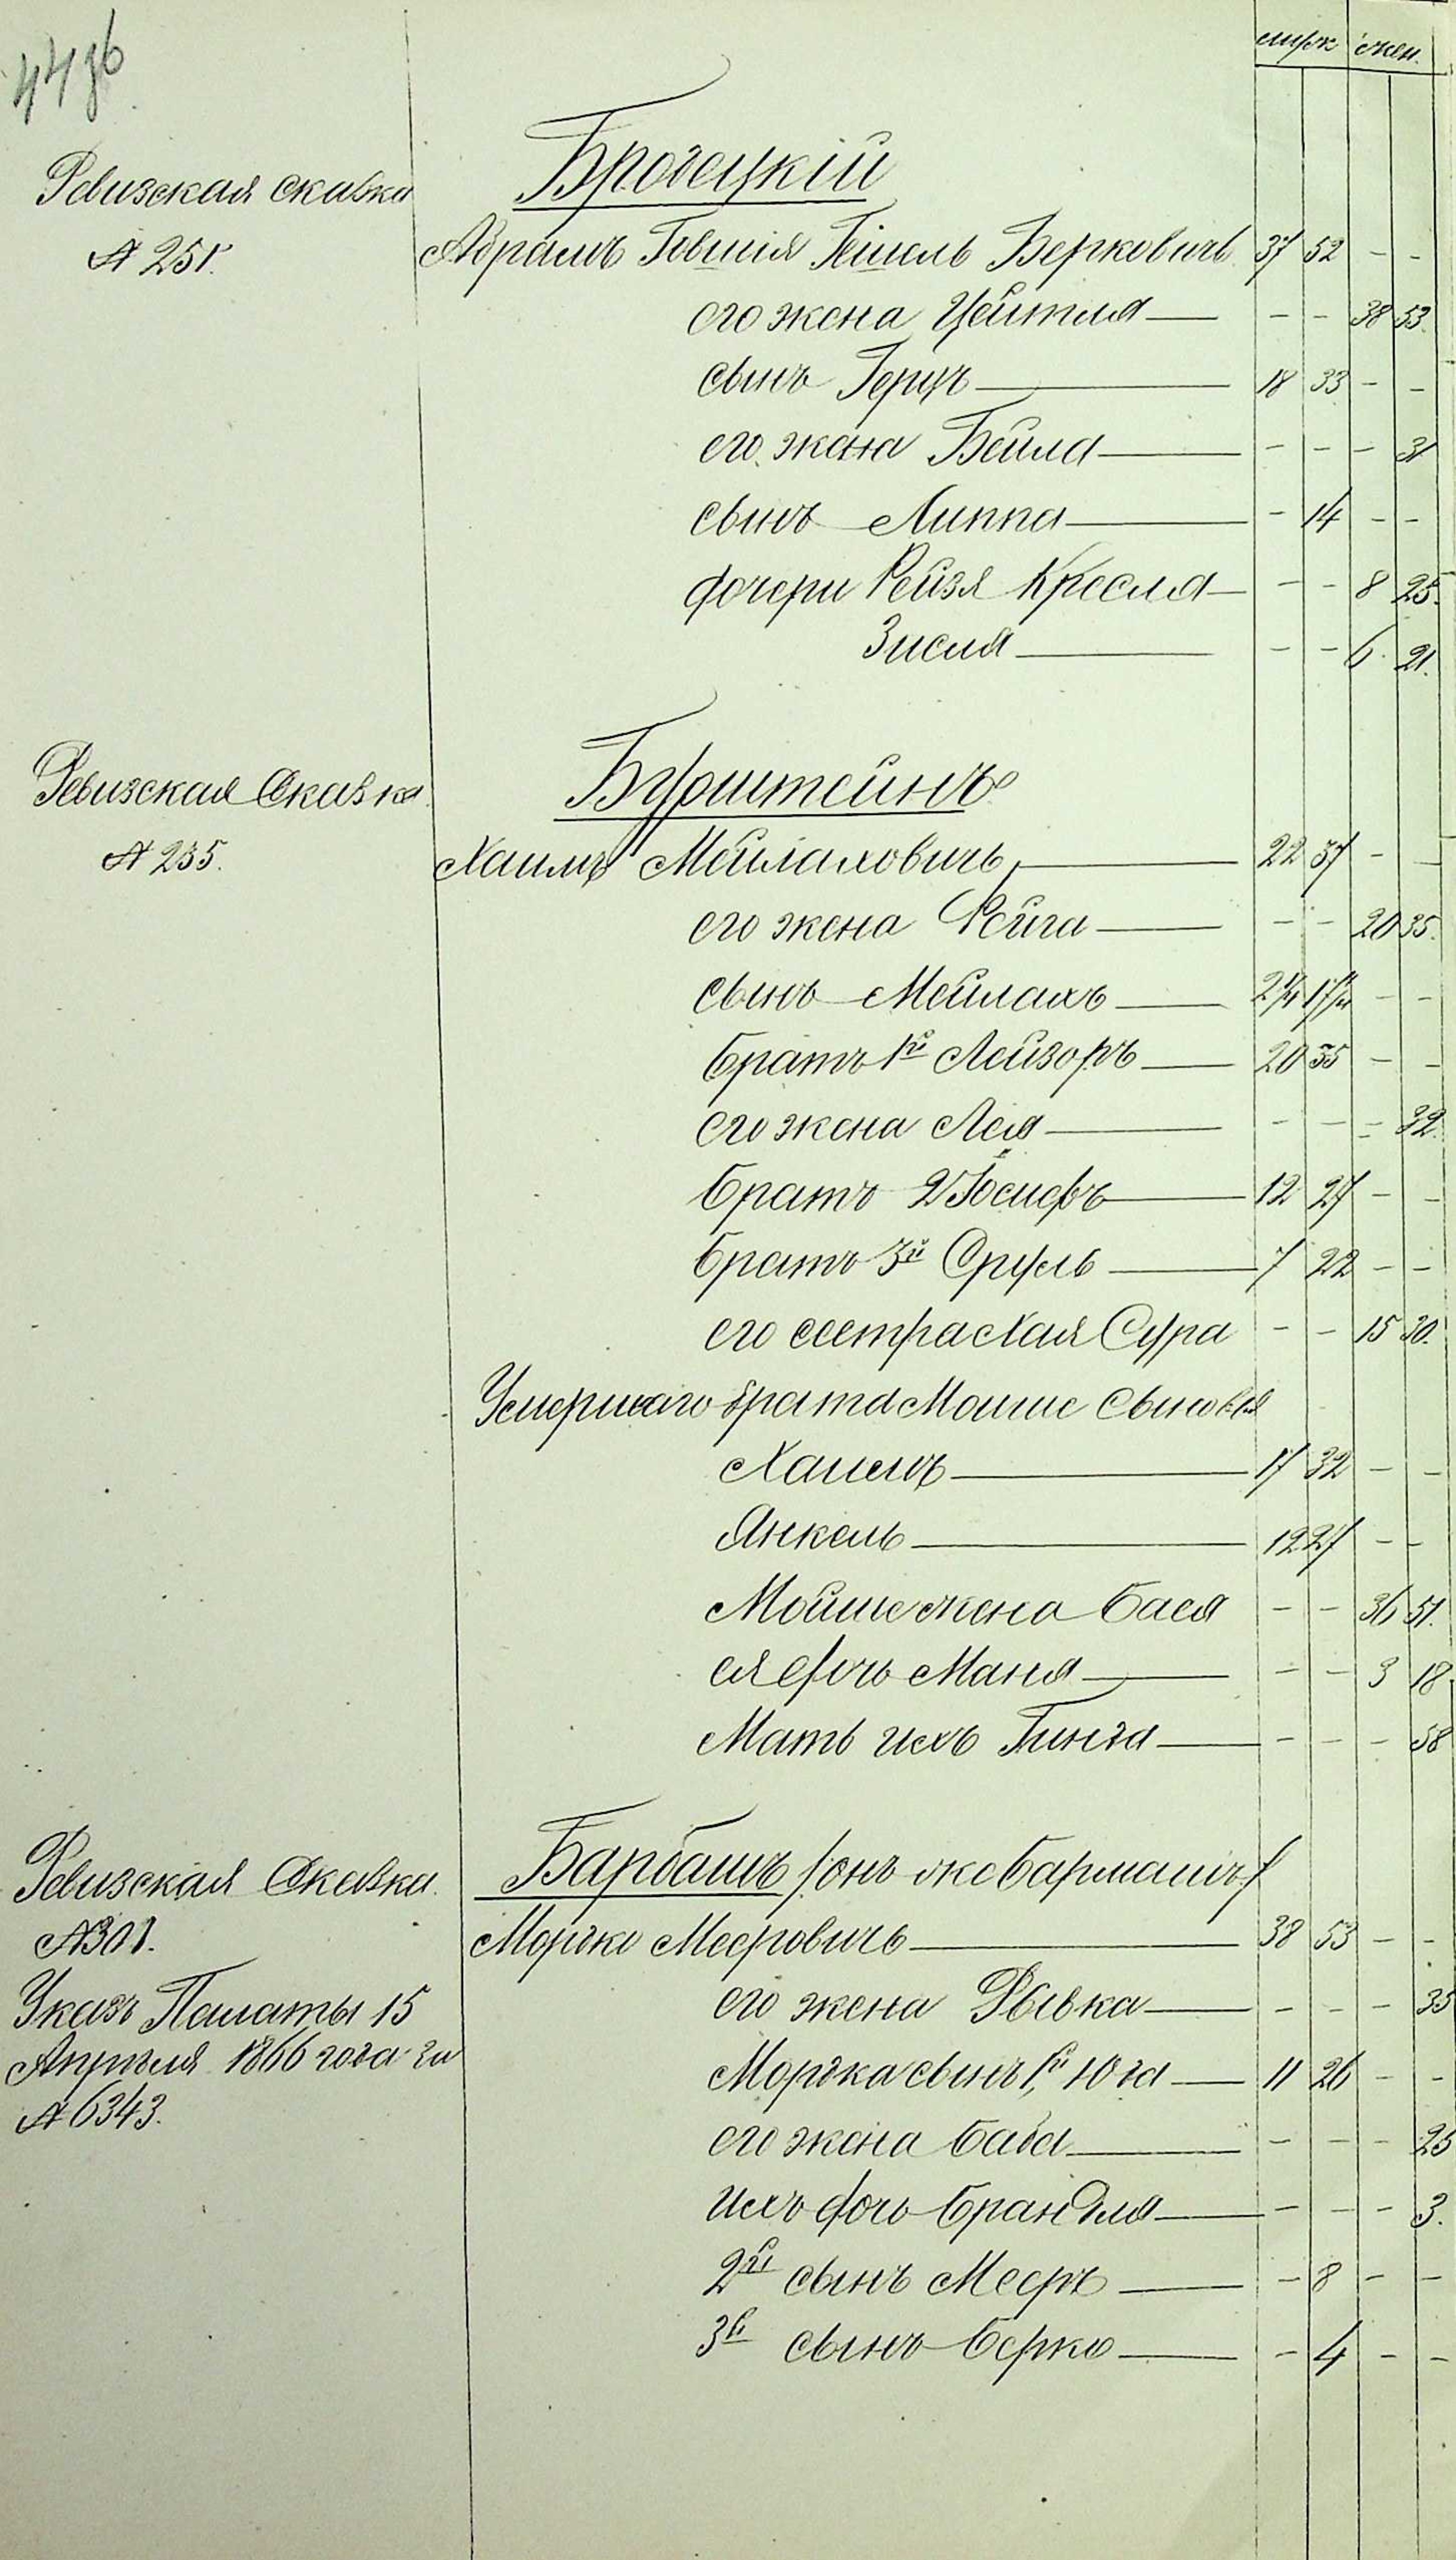 44 зб
муж жен.
Ревизская сказка
№ 251.
Бродецкій
Абрамъ Говшія Гейшель Берковичъ 37 52 - -
его жена Цейтля - - 38 53
сынъ Герцъ 18 33 - -
его жена Бейла - - - 31
сынъ Липпа - 14 - -
дочери Рейзя Кресля - - 8 25.
Зисля - - 6. 21.
Ревизская Сказка
№ 235.
Бурштейнъ
Хаимъ Мейлаховичъ 22 37 - -
его жена Фейга - - 20 35.
сынъ Мейлахъ 2 1/4 17 1/4 - -
братъ 1й Лейзоръ 20 35 - -
его жена Лея - - - 32.
братъ 2 Іосифъ 12 27 - -
братъ 3й Сруль 7 22 - -
его сестра Хая Сура - - 15 30.
Умершаго брата Мошие сыновья
Хаимъ 17 32 - -
Янкель 12 27 - -
Мойше жена Бася - - 36 51.
ея дочь Маня - - 3 18
Мать ихъ Гинда - - - 58
Ревизская Сказка
№ 301.
Указъ Палаты 15
Апрѣля 1866 года за
№ 6343.
Барбашъ /онъ же Бармашъ/
Мордко Мееровичъ 38 53 - -
его жена Рывка - - - 35
Мордка сынъ 1й, Юда 11 26 - -
его жена Баба - - - 25
ихъ дочь Брандля - - - 3.
2й сынъ Мееръ - 8 - -
3й сынъ Берко - 4 - -